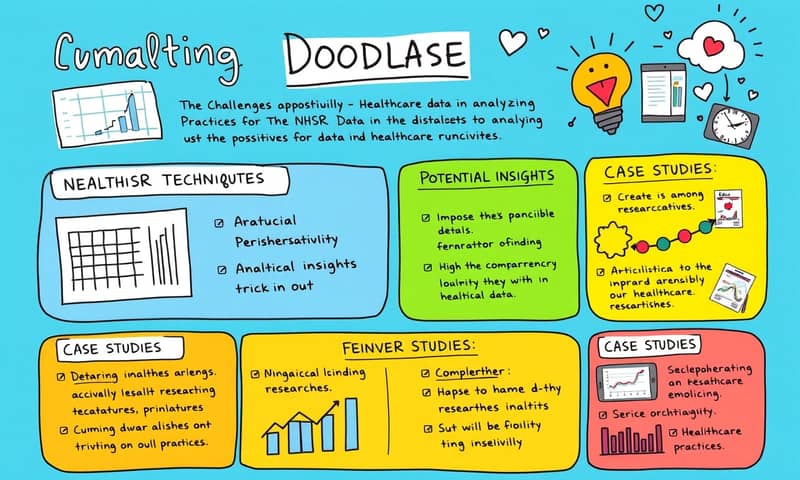 Cumalting
DOODLASE
The Challenges appostiuilly - Healthcare data in analyzing
Practices for The NHSR. Data in the distalsets to analysing
ust the possitives for data ind healthcare runcivites.
NEALTHISR TECHNIQUTES
Aratucial
Perishersativlity
Analtical insights
trick in out
POTENTIAL INSIGHTS
Impose the's panciible
detals.
fernrattor ofinding
High the comparrency
loulnity they with in
healtical data.
CASE STUDIES:
Create is among
researccatives.
Articilistica to the
inprard arensibly
our healithcare.
rescartishes.
CASE STUDIES
Detaring inalthes arlengs.
accivally lesalit researcting
tecatatures, prinlatures
Cumming dwar alishes ont
trivting on oull practices.
FEINVER STUDIES:
Ningaiccal lcinding
researches.
Complerther:
Hapse to hame d-thy
researthes inaltits
Sut will be fioility
ting inselivilly
CASE STUDIES
Seclepoherating
an reseathcare
emolicing.
Serice orchtiagity.
Healthcare
practices.